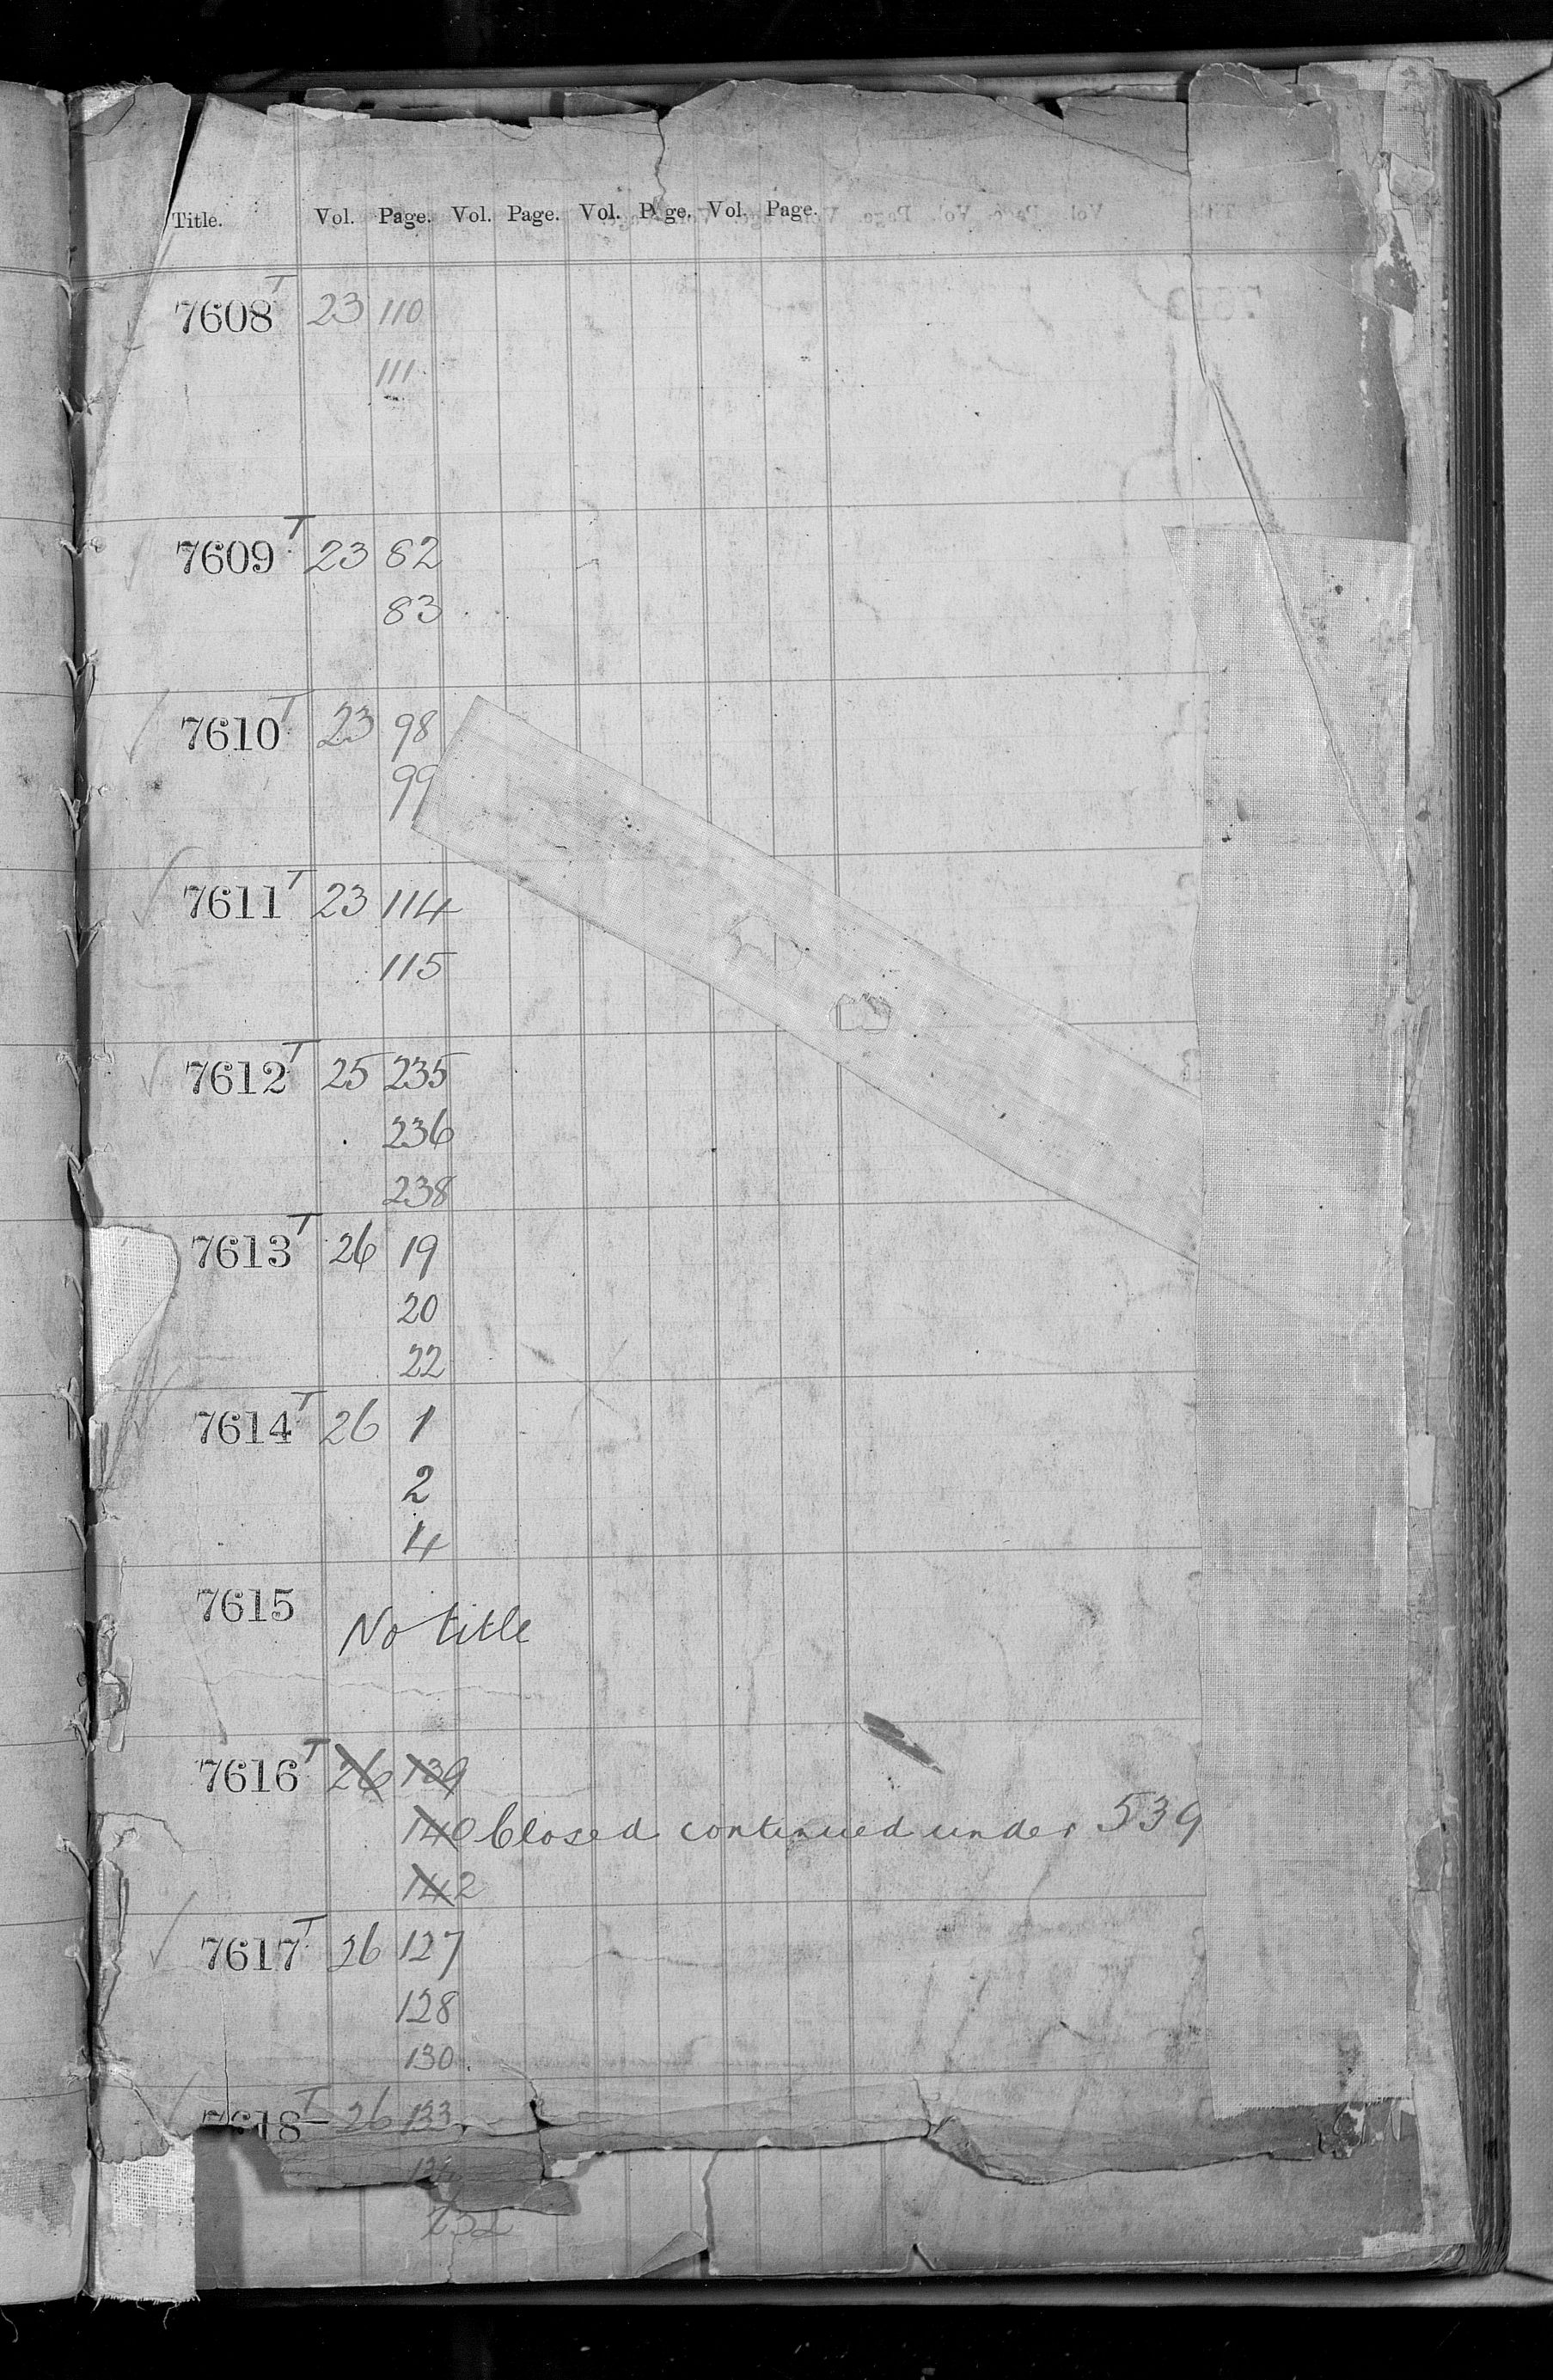 Title. Vol. Page. Vol. Page. Vol. Page. Vol. Page.
7608 T 23 110
111
7609 T 23 82
83
7610 T 23 98
99
7611 T 23 114
115
7612 T 25 235
236
238
7613 T 26 19
20
22
7614 T 26 1
2
4
7615
No title
7616 T 26 139
140 Closed continued under 539
142
7617 T 26 127
128
130
7618 T 26 133